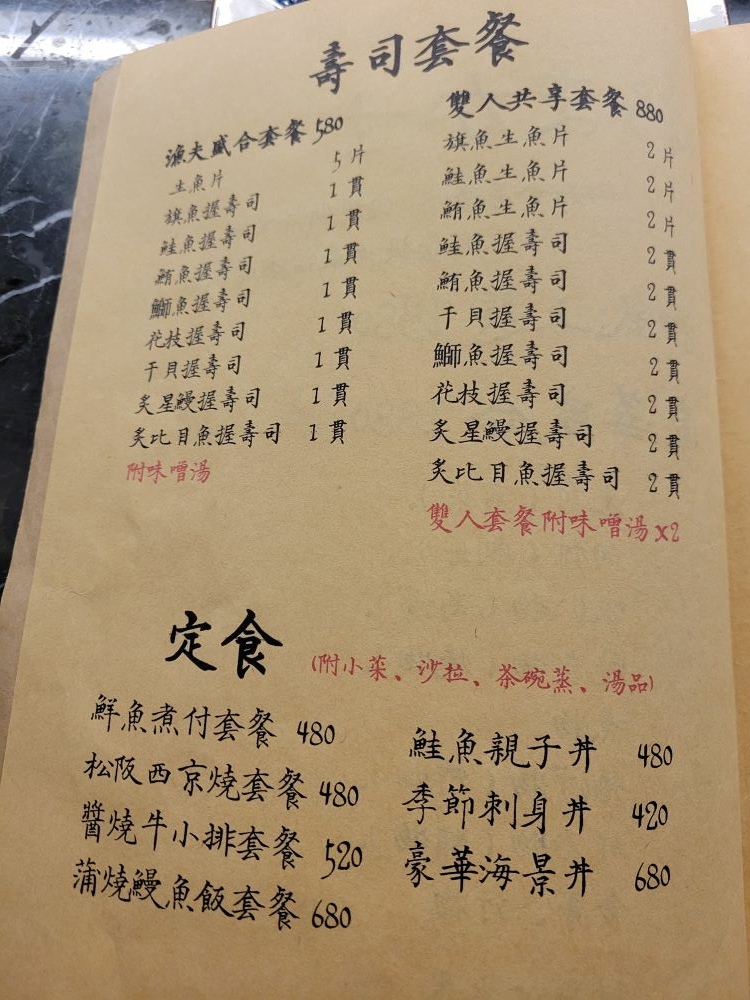 壽司套餐
漁夫盛合套餐 580
生魚片 5片
旗魚握壽司 1貫
鮭魚握壽司 1貫
鮪魚握壽司 1貫
鰤魚握壽司 1貫
花枝握壽司 1貫
干貝握壽司 1貫
炙星鰻握壽司 1貫
炙比目魚握壽司 1貫
附味噌湯
雙人共享套餐 880
旗魚生魚片 2片
鮭魚生魚片 2片
鮪魚生魚片 2片
鮭魚握壽司 2貫
鮪魚握壽司 2貫
干貝握壽司 2貫
鰤魚握壽司 2貫
花枝握壽司 2貫
炙星鰻握壽司 2貫
炙比目魚握壽司 2貫
雙人套餐附味噌湯x2
定食 (附小菜、沙拉、茶碗蒸、湯品)
鮮魚煮付套餐 480
松阪西京燒套餐 480
醬燒牛小排套餐 520
蒲燒鰻魚飯套餐 680
鮭魚親子丼 480
季節刺身丼 420
豪華海景丼 680